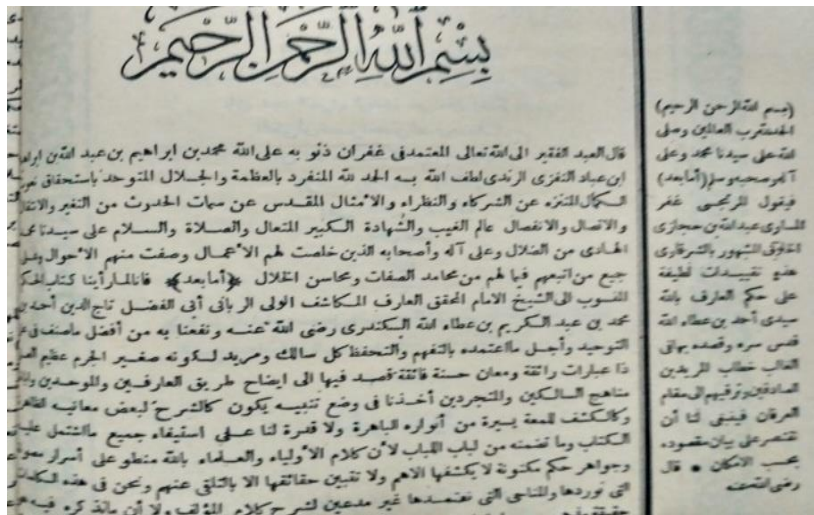 بسم الله الرحمن الرحيم
قال العبد الفقير الى الله تعالى المعتمد فى غفران ذنوبه على الله محمد بن ابراهيم بن عبد الله بن
ابن عباد النفزى الرندى لطف الله به الحمد لله المنفرد بالعظمة والجلال المتوحد باستحقاق
الكمال المنزه عن الشركاء والنظراء والأمثال المقدس عن سمات الحدوث من التغير
والاتصال والانفصال عالم الغيب والشهادة الكبير المتعال والصلاة والسلام على سيدنا
الهادى من الضلال وعلى آله وأصحابه الذين خلصت لهم الأعمال وصفت منهم الأحوال
جميع من اتبعهم فيما لهم من محامد الصفات ومحاسن الخلال ﴿أما بعد﴾ فانا لما رأينا كتاب
المنسوب الى الشيخ الامام المحقق العارف المكاشف الولى الربانى أبى الفضل تاج الدين أحمد بن
محمد بن عبد الكريم بن عطاء الله السكندرى رضى الله عنه ونفعنا به من أفضل ما صنف فى
التوحيد وأجل ما اعتمده بالتفهم والتحفظ كل سالك ومريد لكونه صغير الجرم عظيم
ذا عبارات رائقة ومعان حسنة فائقة قصد فيها الى ايضاح طريق العارفين والموحدين
مناهج السالكين والمتجردين أخذنا فى وضع تنبيه يكون كالشرح لبعض معانيه
وكالكشف للمعة يسيرة من أنواره الباهرة ولا قدرة لنا على استيفاء جميع ما اشتمل عليه
الكتاب وما تضمنه من لباب اللباب لأن كلام الأولياء والعلماء بالله منطو على أسرار
وجواهر حكم مكنونة لا يكشفها الاهم ولا تتبين حقائقها الا بالتلقى عنهم ونحن فى هذه
التى نوردها والمناحى التى نعتمدها غير مدعين لشرح كلام المؤلف ولا أن ما نذكره فيه هو
(بسم الله الرحمن الرحيم)
الحمد لله رب العالمين وصلى
الله على سيدنا محمد وعلى
آله وصحبه وسلم (أما بعد)
فيقول المرتجى غفر
المساوى عبد الله بن حجازى
الخلوتى المشهور بالشرقاوى
هذه تقييدات لطيفة
على حكم العارف بالله
سيدى أحمد بن عطاء الله
قدس سره وقصده بهاتى
الغالب خطاب المريدين
الصادقين وترقيهم الى مقام
العرفان فينبغى لنا أن
نقتصر على بيان مقصوده
بحسب الامكان * قال
رضى الله عنه